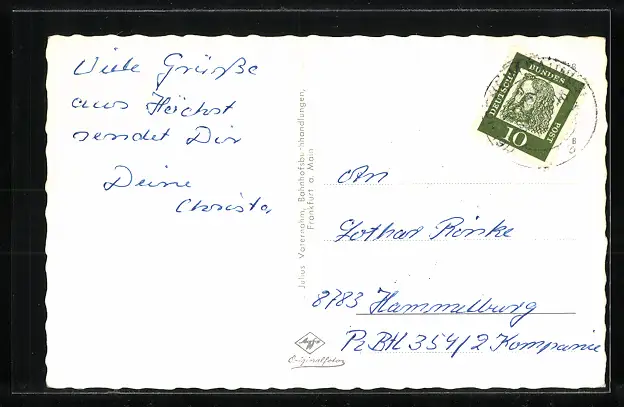 Viele Grüße
aus Höchst
sendet Dir
Deine
Christa
Julius Vaternahm, Bahnhofsbuchhandlungen,
Frankfurt a. Main
DEUTSCHE
BUNDES
POST
10
An
Lothar Rinke
8783 Hammelburg
Pz Btl 354/2 Kompanie
Agfa
Originalfoto